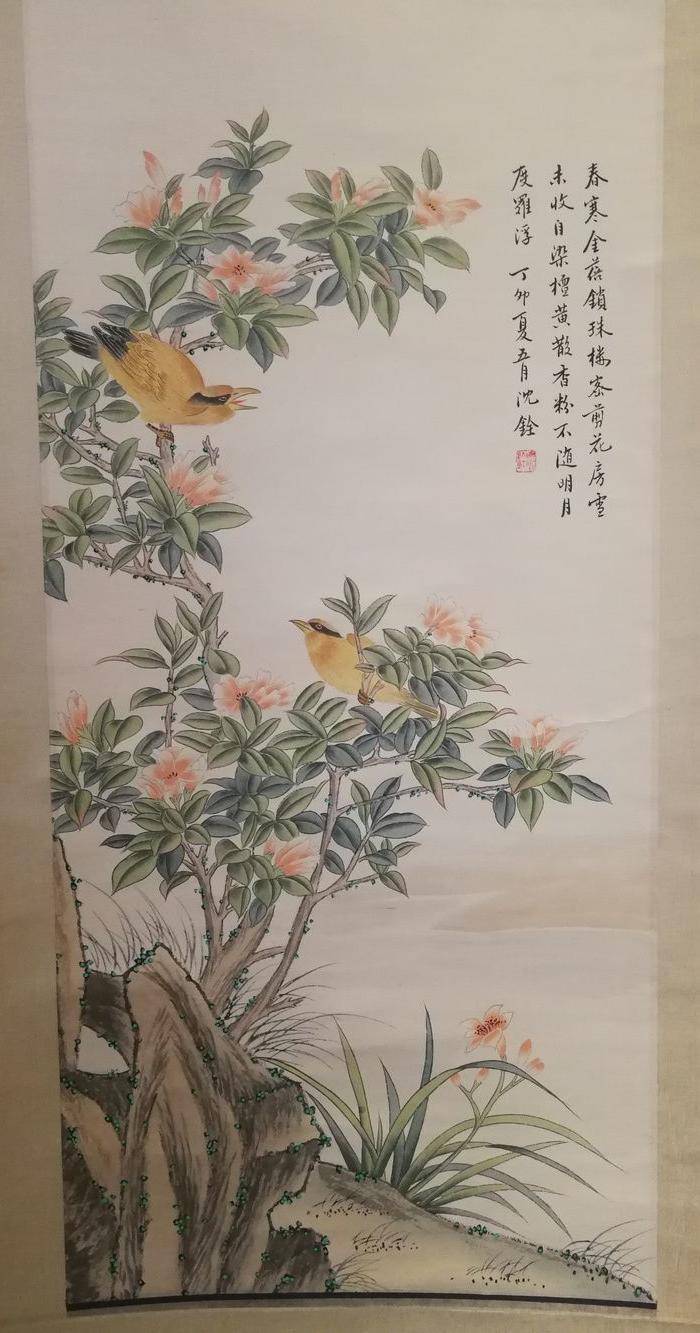 春寒金蕊鎖珠樓密剪花房雪
未收自染檀黃散香粉不随明月
度羅浮 丁卯夏五月沈銓